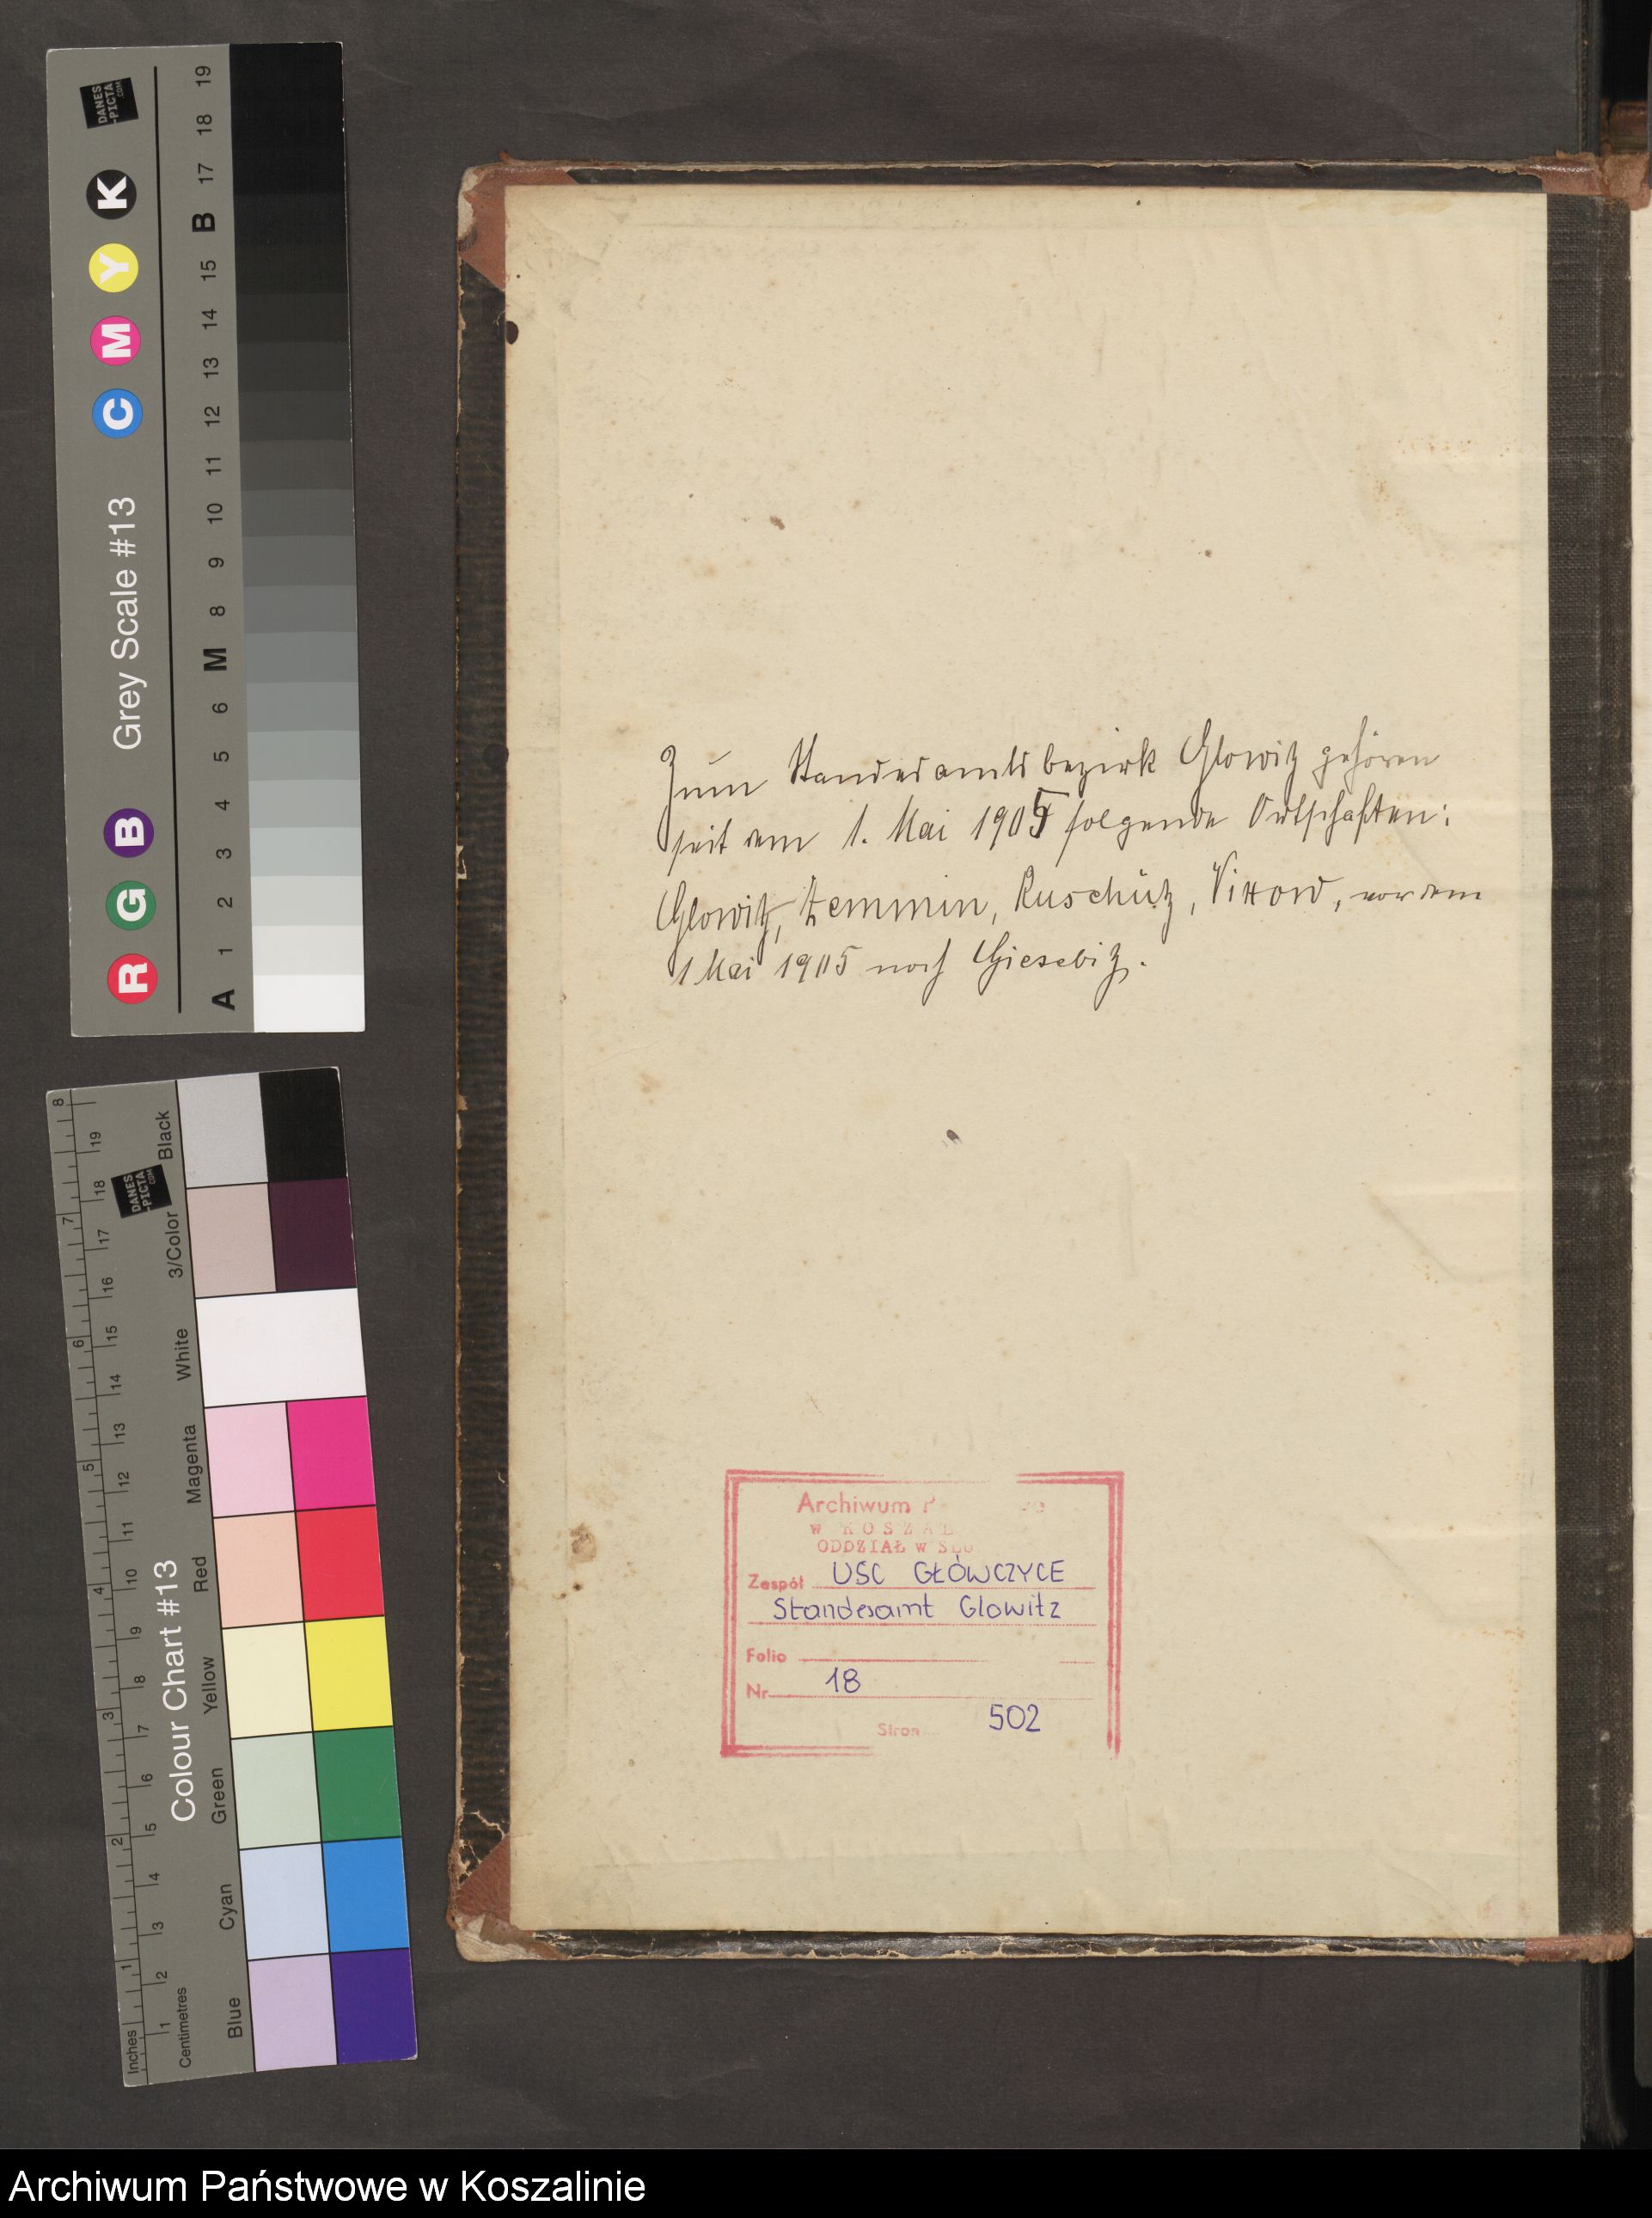 Zum Standesamtsbezirk Glowitz gehören
seit dem 1. Mai 1905 folgende Ortschaften:
Glowitz, Zemmin, Ruschütz, Vixow, vor dem
1 Mai 1905 noch Giesebitz.
Archiwum P
w KOSZAL
ODDZIAŁ w SŁU
Zespół USC GŁÓWCZYCE
Standesamt Glowitz
Folio
Nr 18
Stron 502
DANES
-PICTA
.COM
Grey Scale #13
R G B C M Y K
A 1 2 3 4 5 6 M 8 9 10 11 12 13 14 15 B 17 18 19
DANES
-PICTA
.COM
Colour Chart #13
Inches 1 2 3 4 5 6 7 8
Centimetres 1 2 3 4 5 6 7 8 9 10 11 12 13 14 15 16 17 18 19
Blue Cyan Green Yellow Red Magenta White 3/Color Black
Archiwum Państwowe w Koszalinie